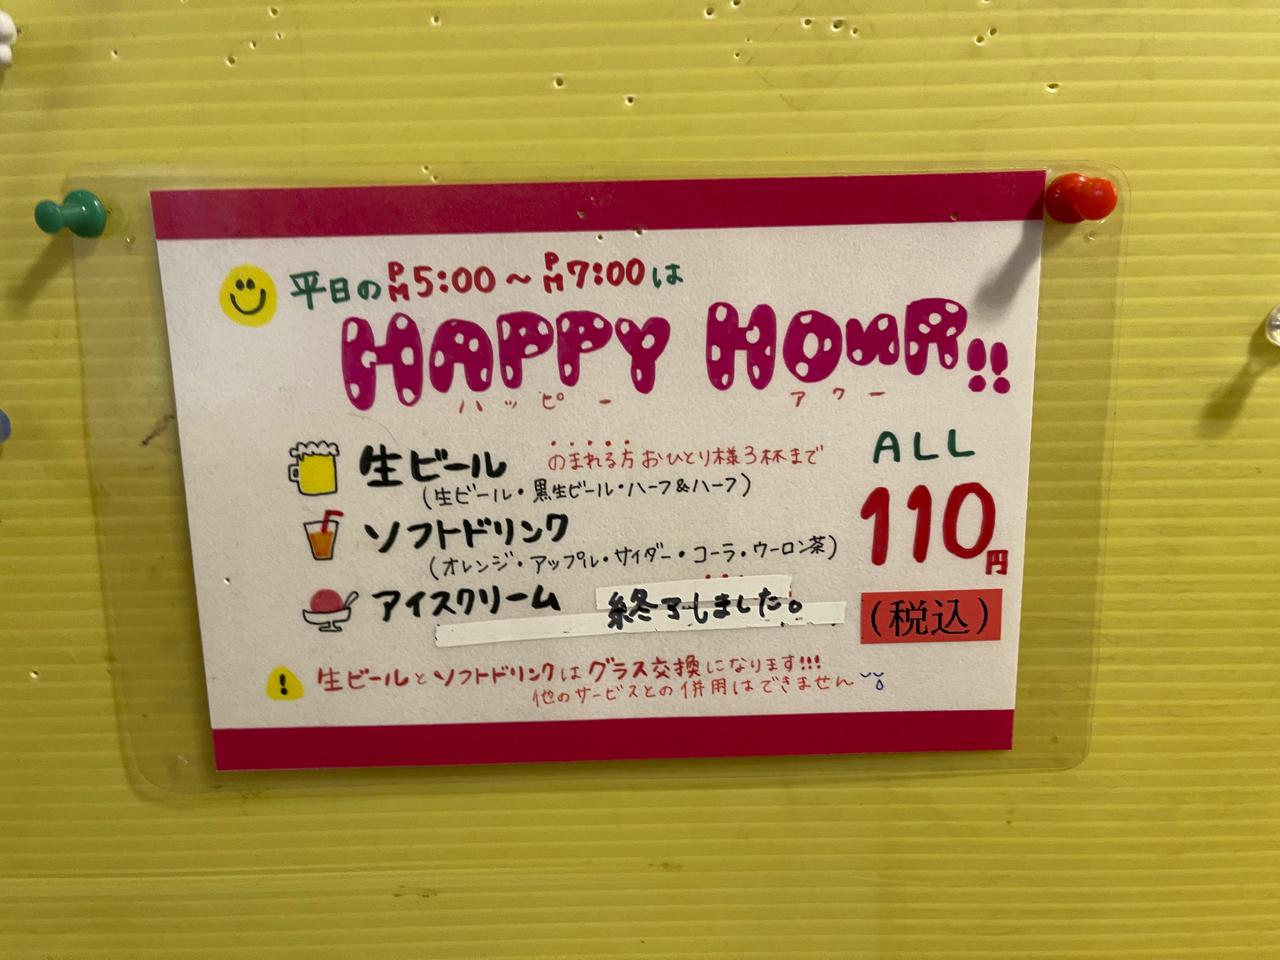 平日のPM5:00～PM7:00は
HAPPY HOUR!!
ハッピー アワー
生ビール のまれる方おひとり様3杯まで
(生ビール・黒生ビール・ハーフ&ハーフ)
ソフトドリンク
(オレンジ・アップル・サイダー・コーラ・ウーロン茶)
アイスクリーム 終了しました。
ALL
110円
(税込)
! 生ビールとソフトドリンクはグラス交換になります!!!
他のサービスとの併用はできません